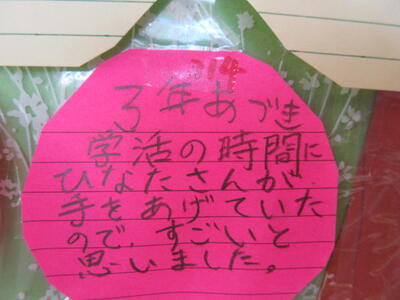 214
3年あづき
学活の時間に
ひなたさんが、
手をあげていた
ので、すごいと
思いました。